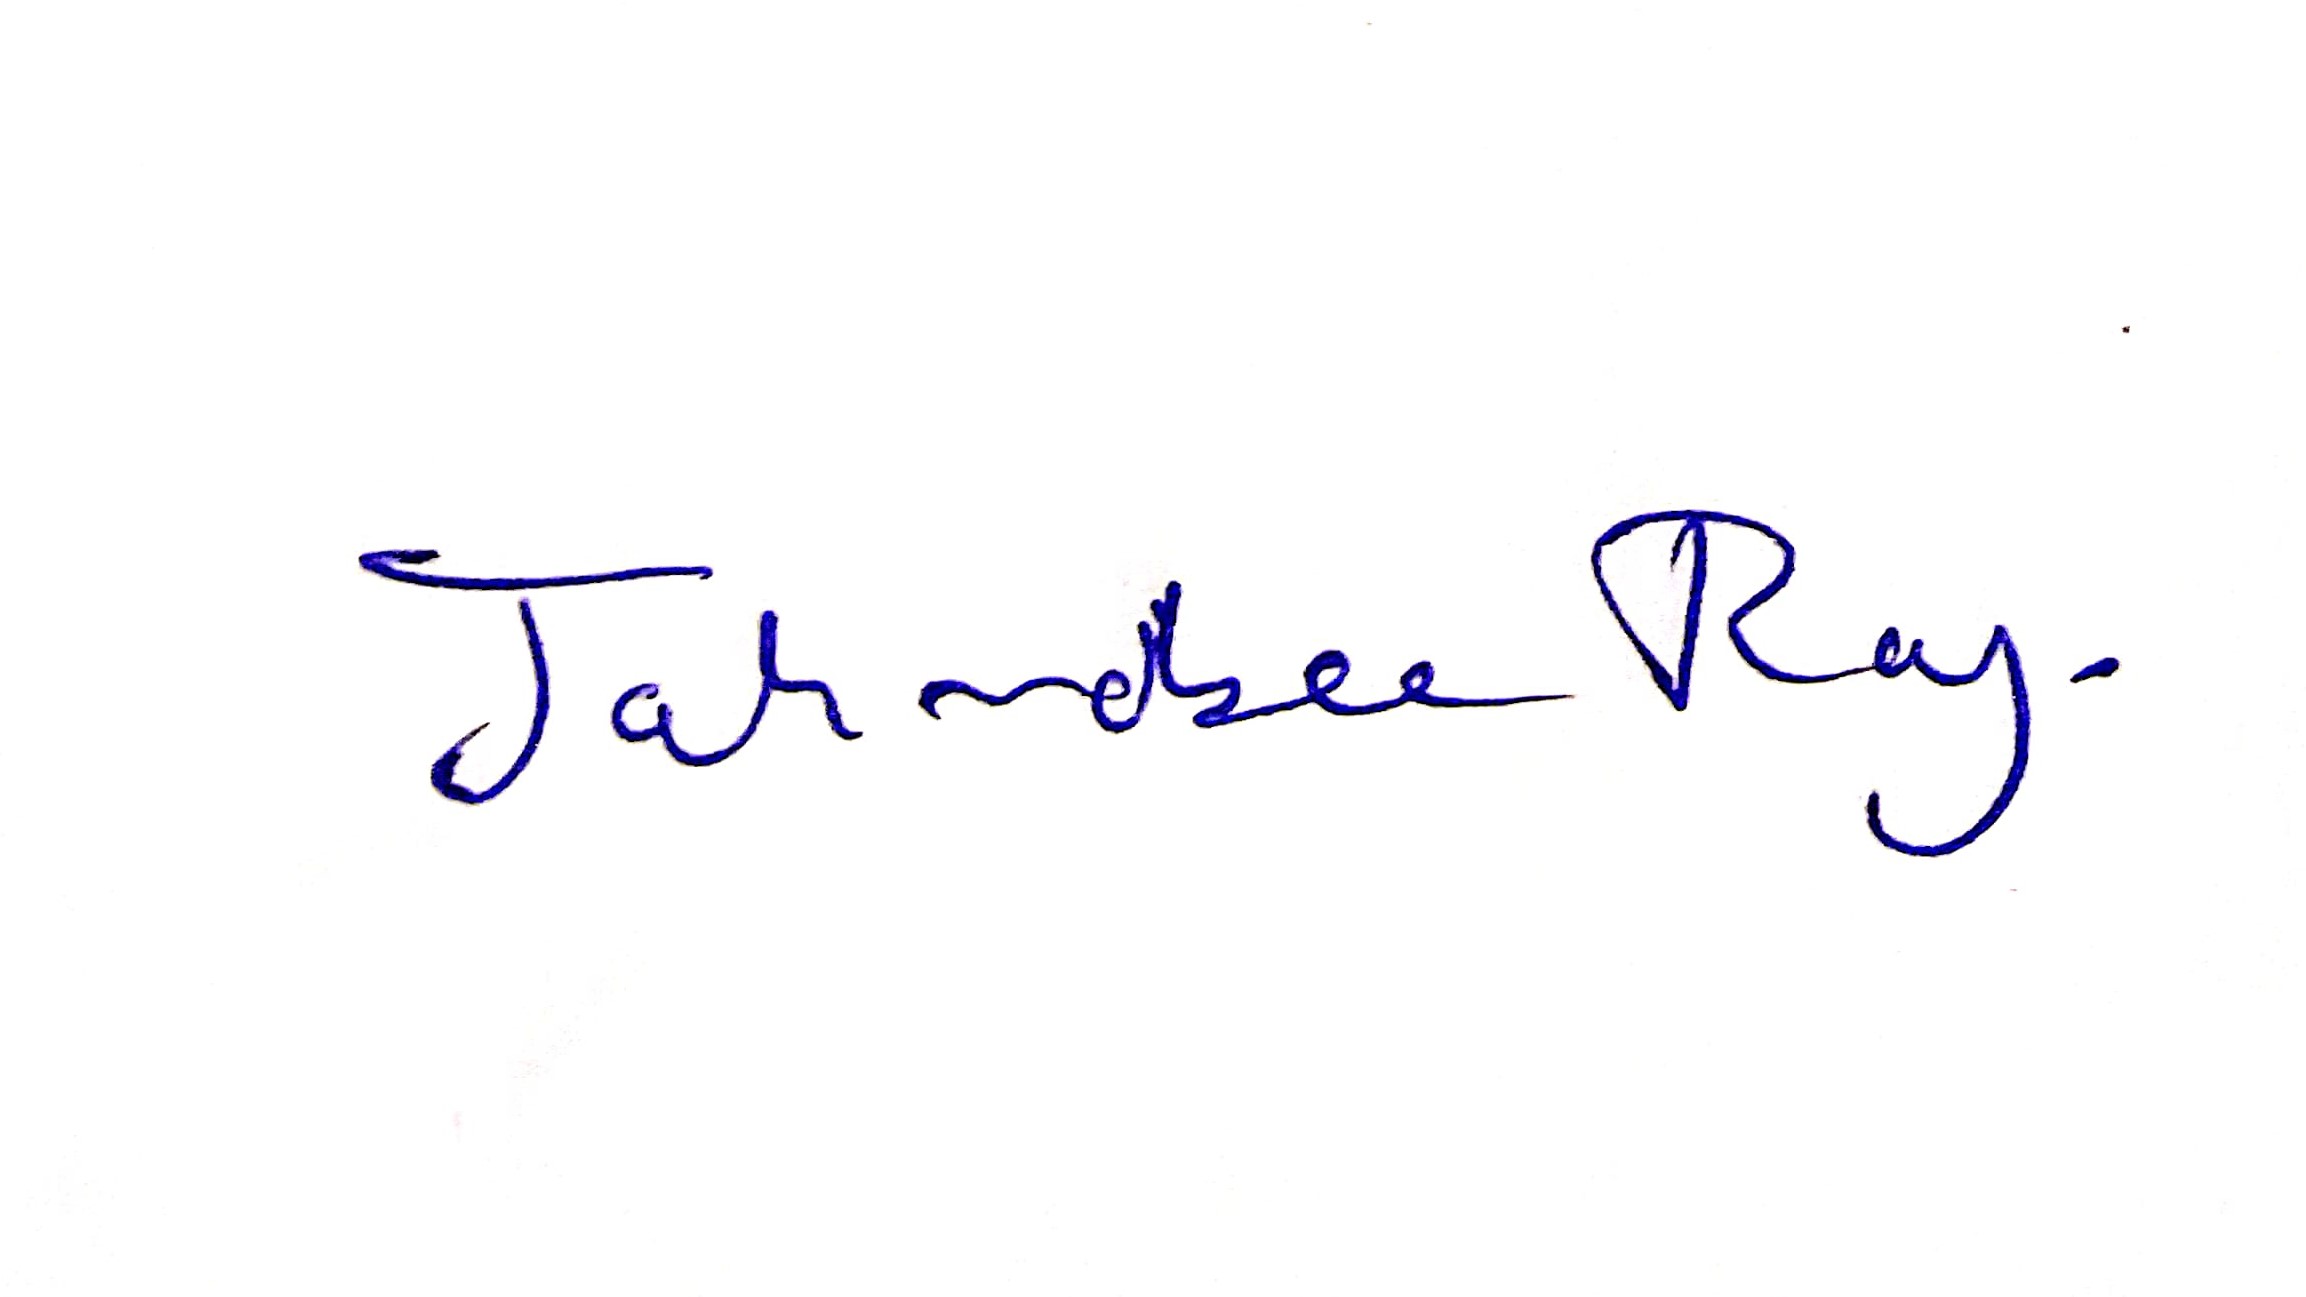 Jahndsee Ray.